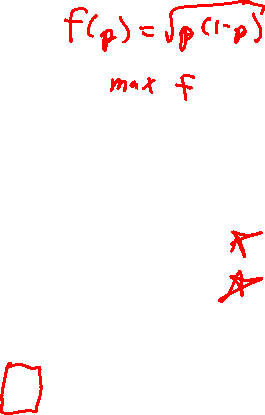 f(p) = √p(1-p)
max f